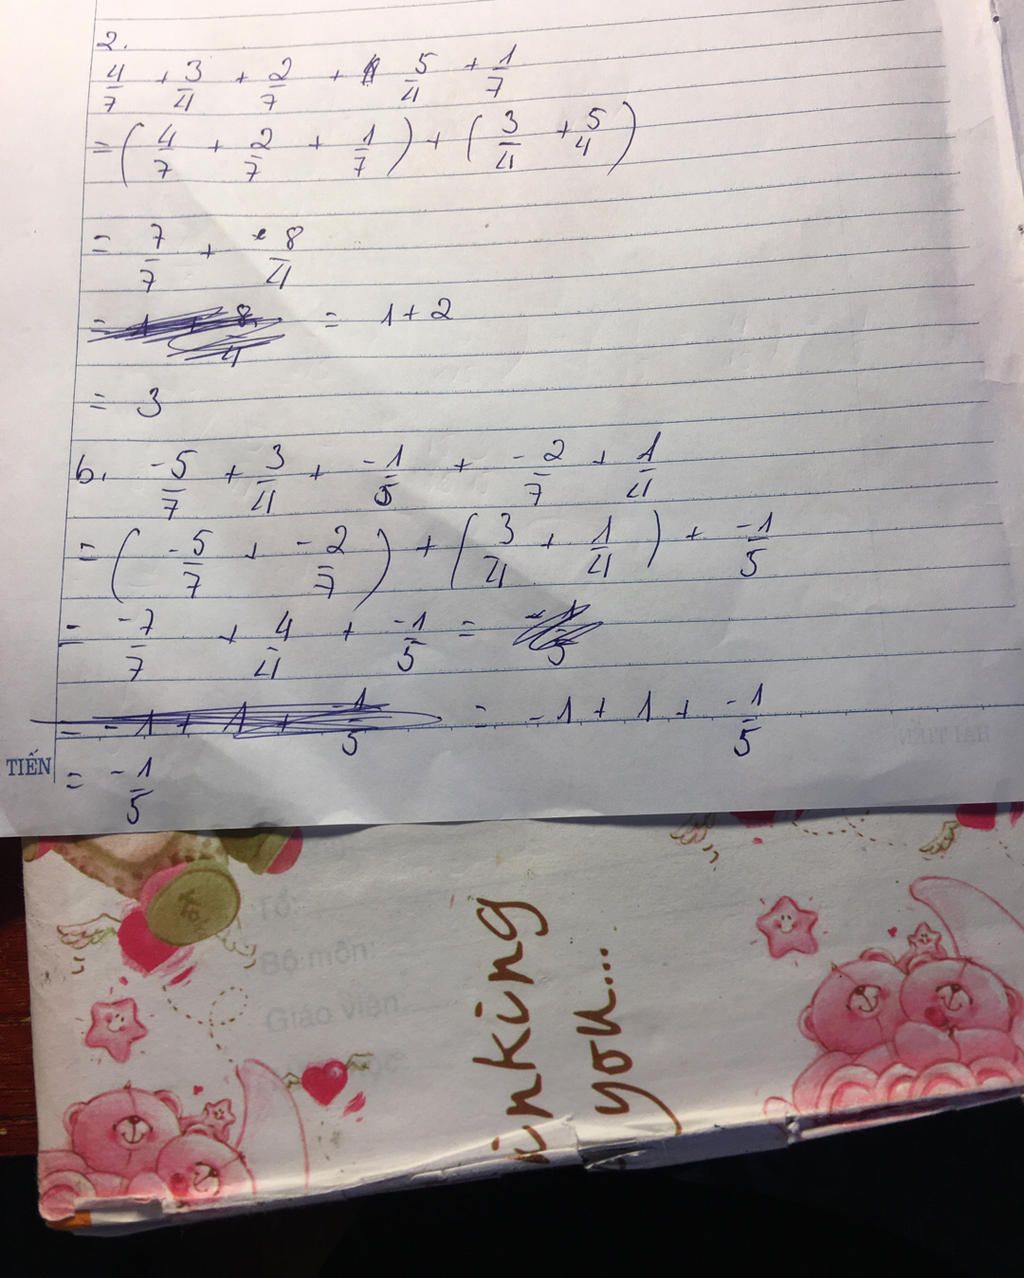 2.
4/7 + 3/4 + 2/7 + 5/4 + 1/7
= (4/7 + 2/7 + 1/7) + (3/4 + 5/4)
= 7/7 + 8/4
= 1 + 2
= 3
b. -5/7 + 3/4 + -1/5 + -2/7 + 1/4
= (-5/7 + -2/7) + (3/4 + 1/4) + -1/5
= -7/7 + 4/4 + -1/5 =
= -1 + 1 + -1/5
TIẾN
= -1/5
TỔ:
Bộ môn:
Giáo viên
inking
you...